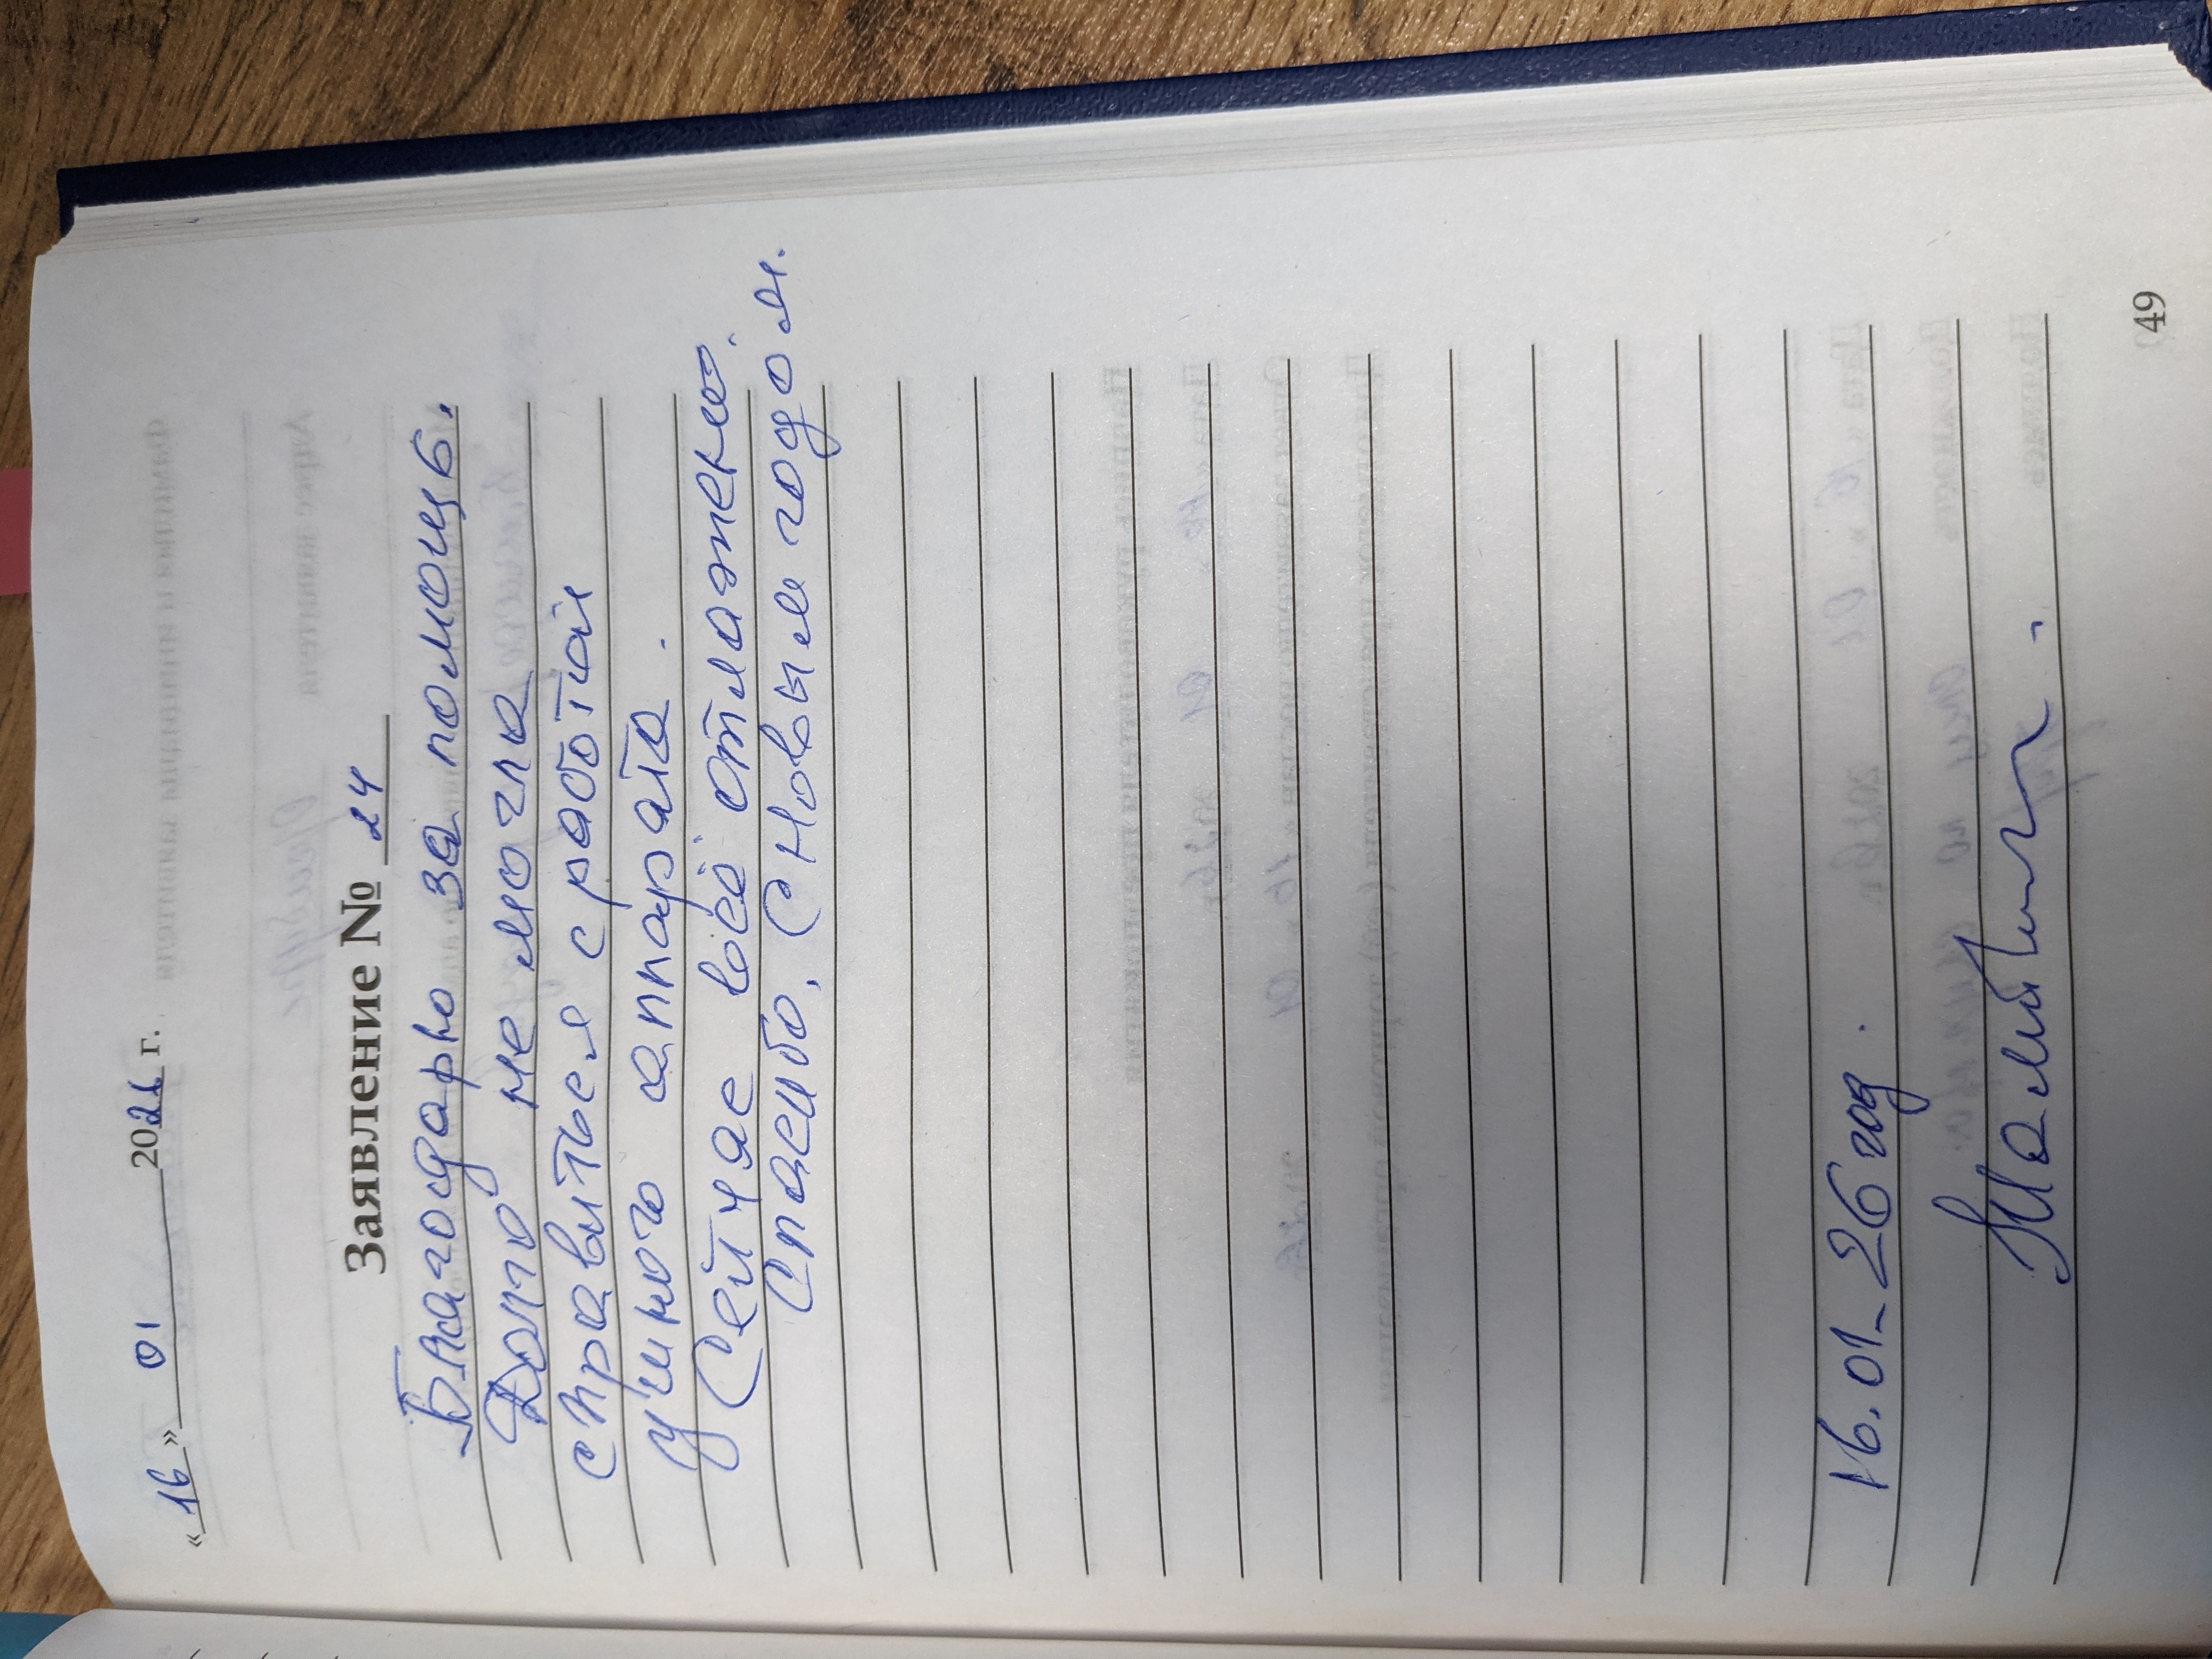 «16» 01 2026 г.
Заявление № 24
Благодарю за помощь.
Долго не могла
справиться с работой
ушного аппарата.
Сейчас всё отлажено.
Спасибо. С Новым годом.
16.01_26 год.
49